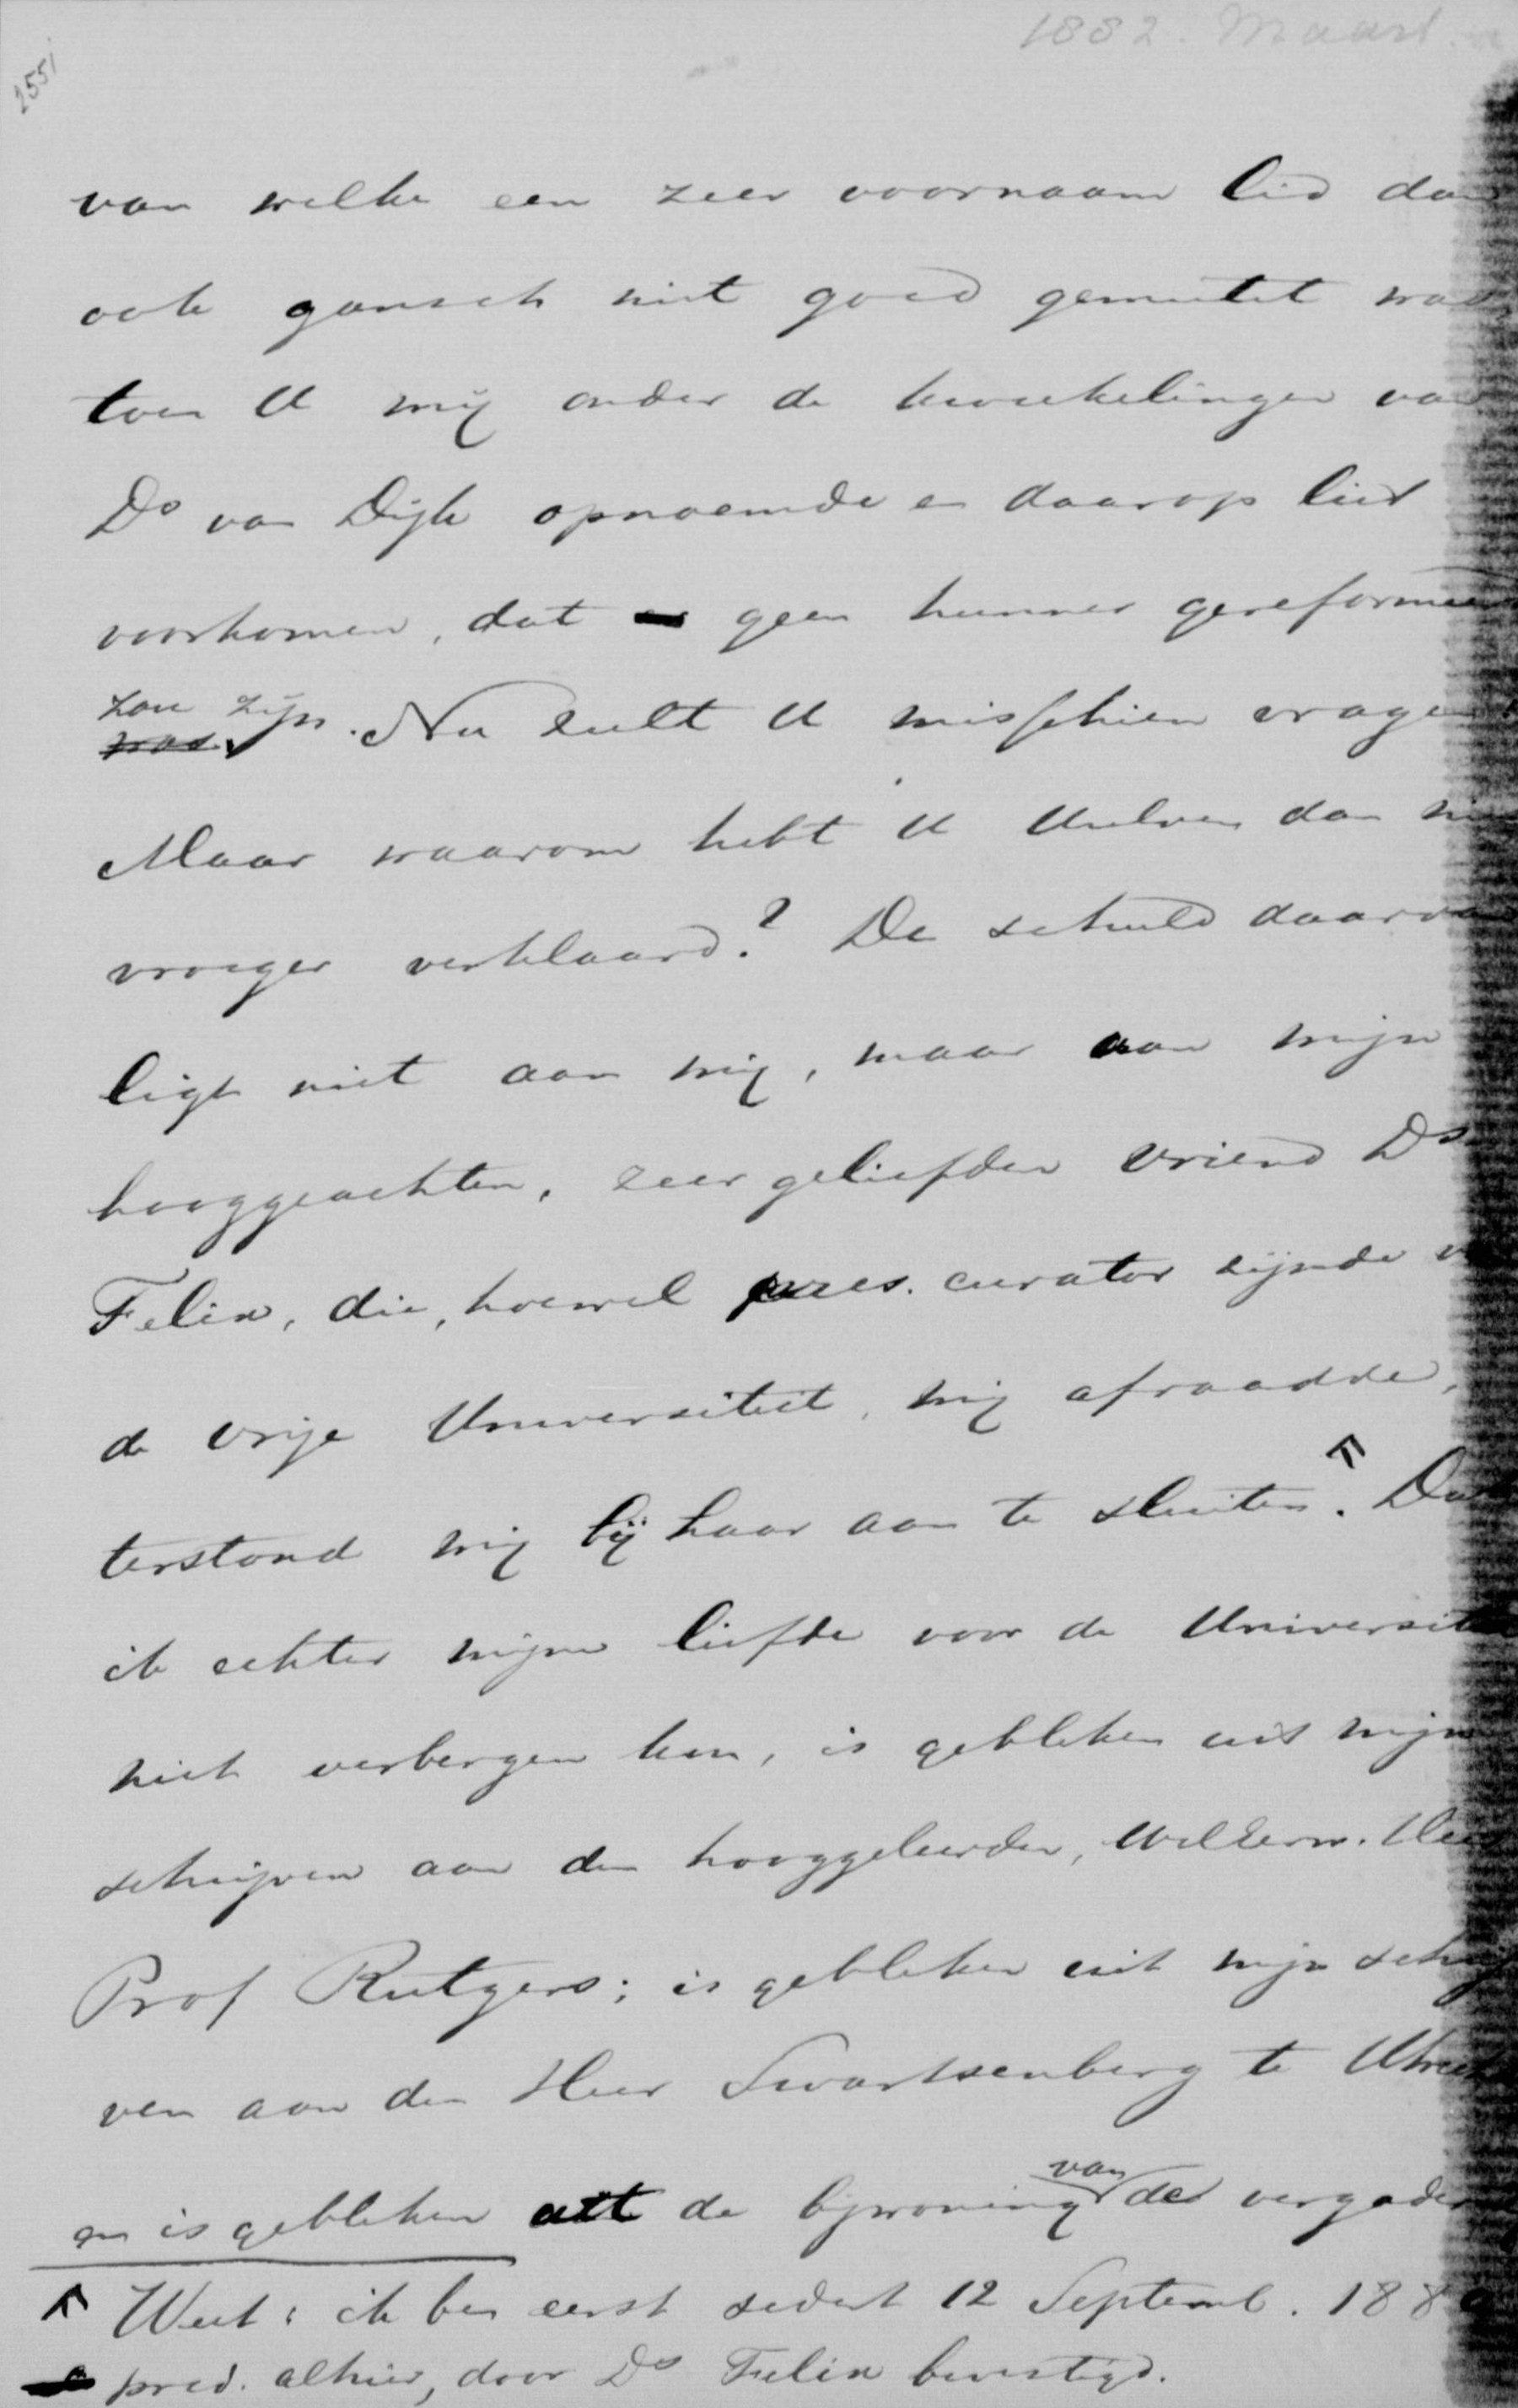 1882. Maart
2551
van welke een zeer voornaam lid dan
ook gansch niet goed gemutst was
toen U mij onder de kweekelingen van
Ds van Dijk opnoemde en daarop liet
voorkomen, dat geen hunner gereformeerd
zou zijn
was. Nu zult U misschien vragen:
Maar waarom hebt U Uzelven dan
vroeger verklaard? De schuld daarvan
ligt niet aan mij, maar aan mijn
hooggeachten, zeer geliefden vriend Ds
Felix, die, hoewel praes. curator zijnde
de vrije Universiteit, mij afraadde,
terstond mij bij haar aan te sluiten. Dat
ik echter mijne liefde voor de Universiteit
niet verbergen kon, is gebleken uit mijn
schrijven aan den hooggeleerden, Heer
Prof Rutgers; is gebleken uit mijn schrij
ven aan den Heer Swartsenberg te Utrecht
van
en is gebleken uit de bijwoning der vergader
Weet: ik ben eerst sedert 12 Septemb. 188
pred. alhier, door Ds Felix bevestigd.